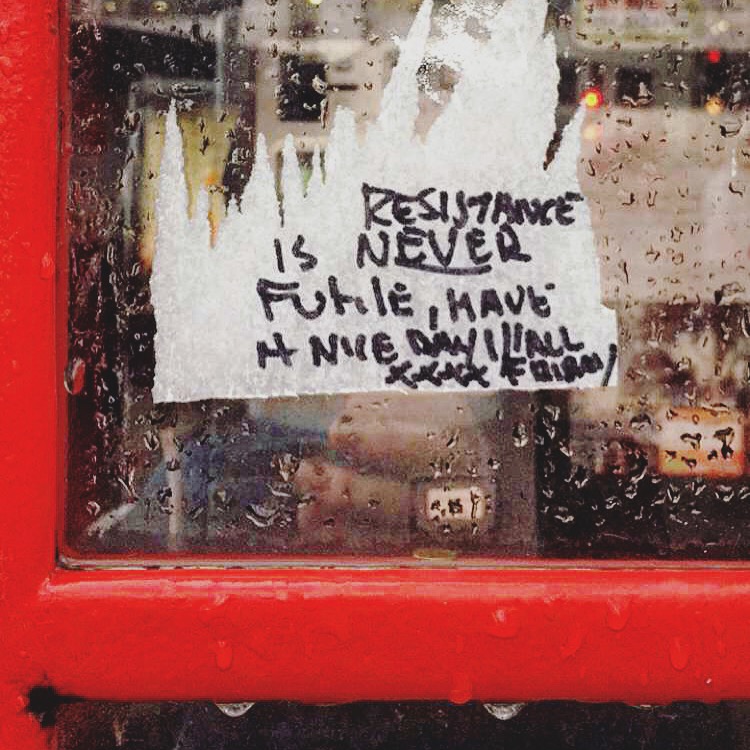 RESISTANCE
IS NEVER
FUtile, HAVE
A NICE DAY!! ALL
xxxx FRIDAY